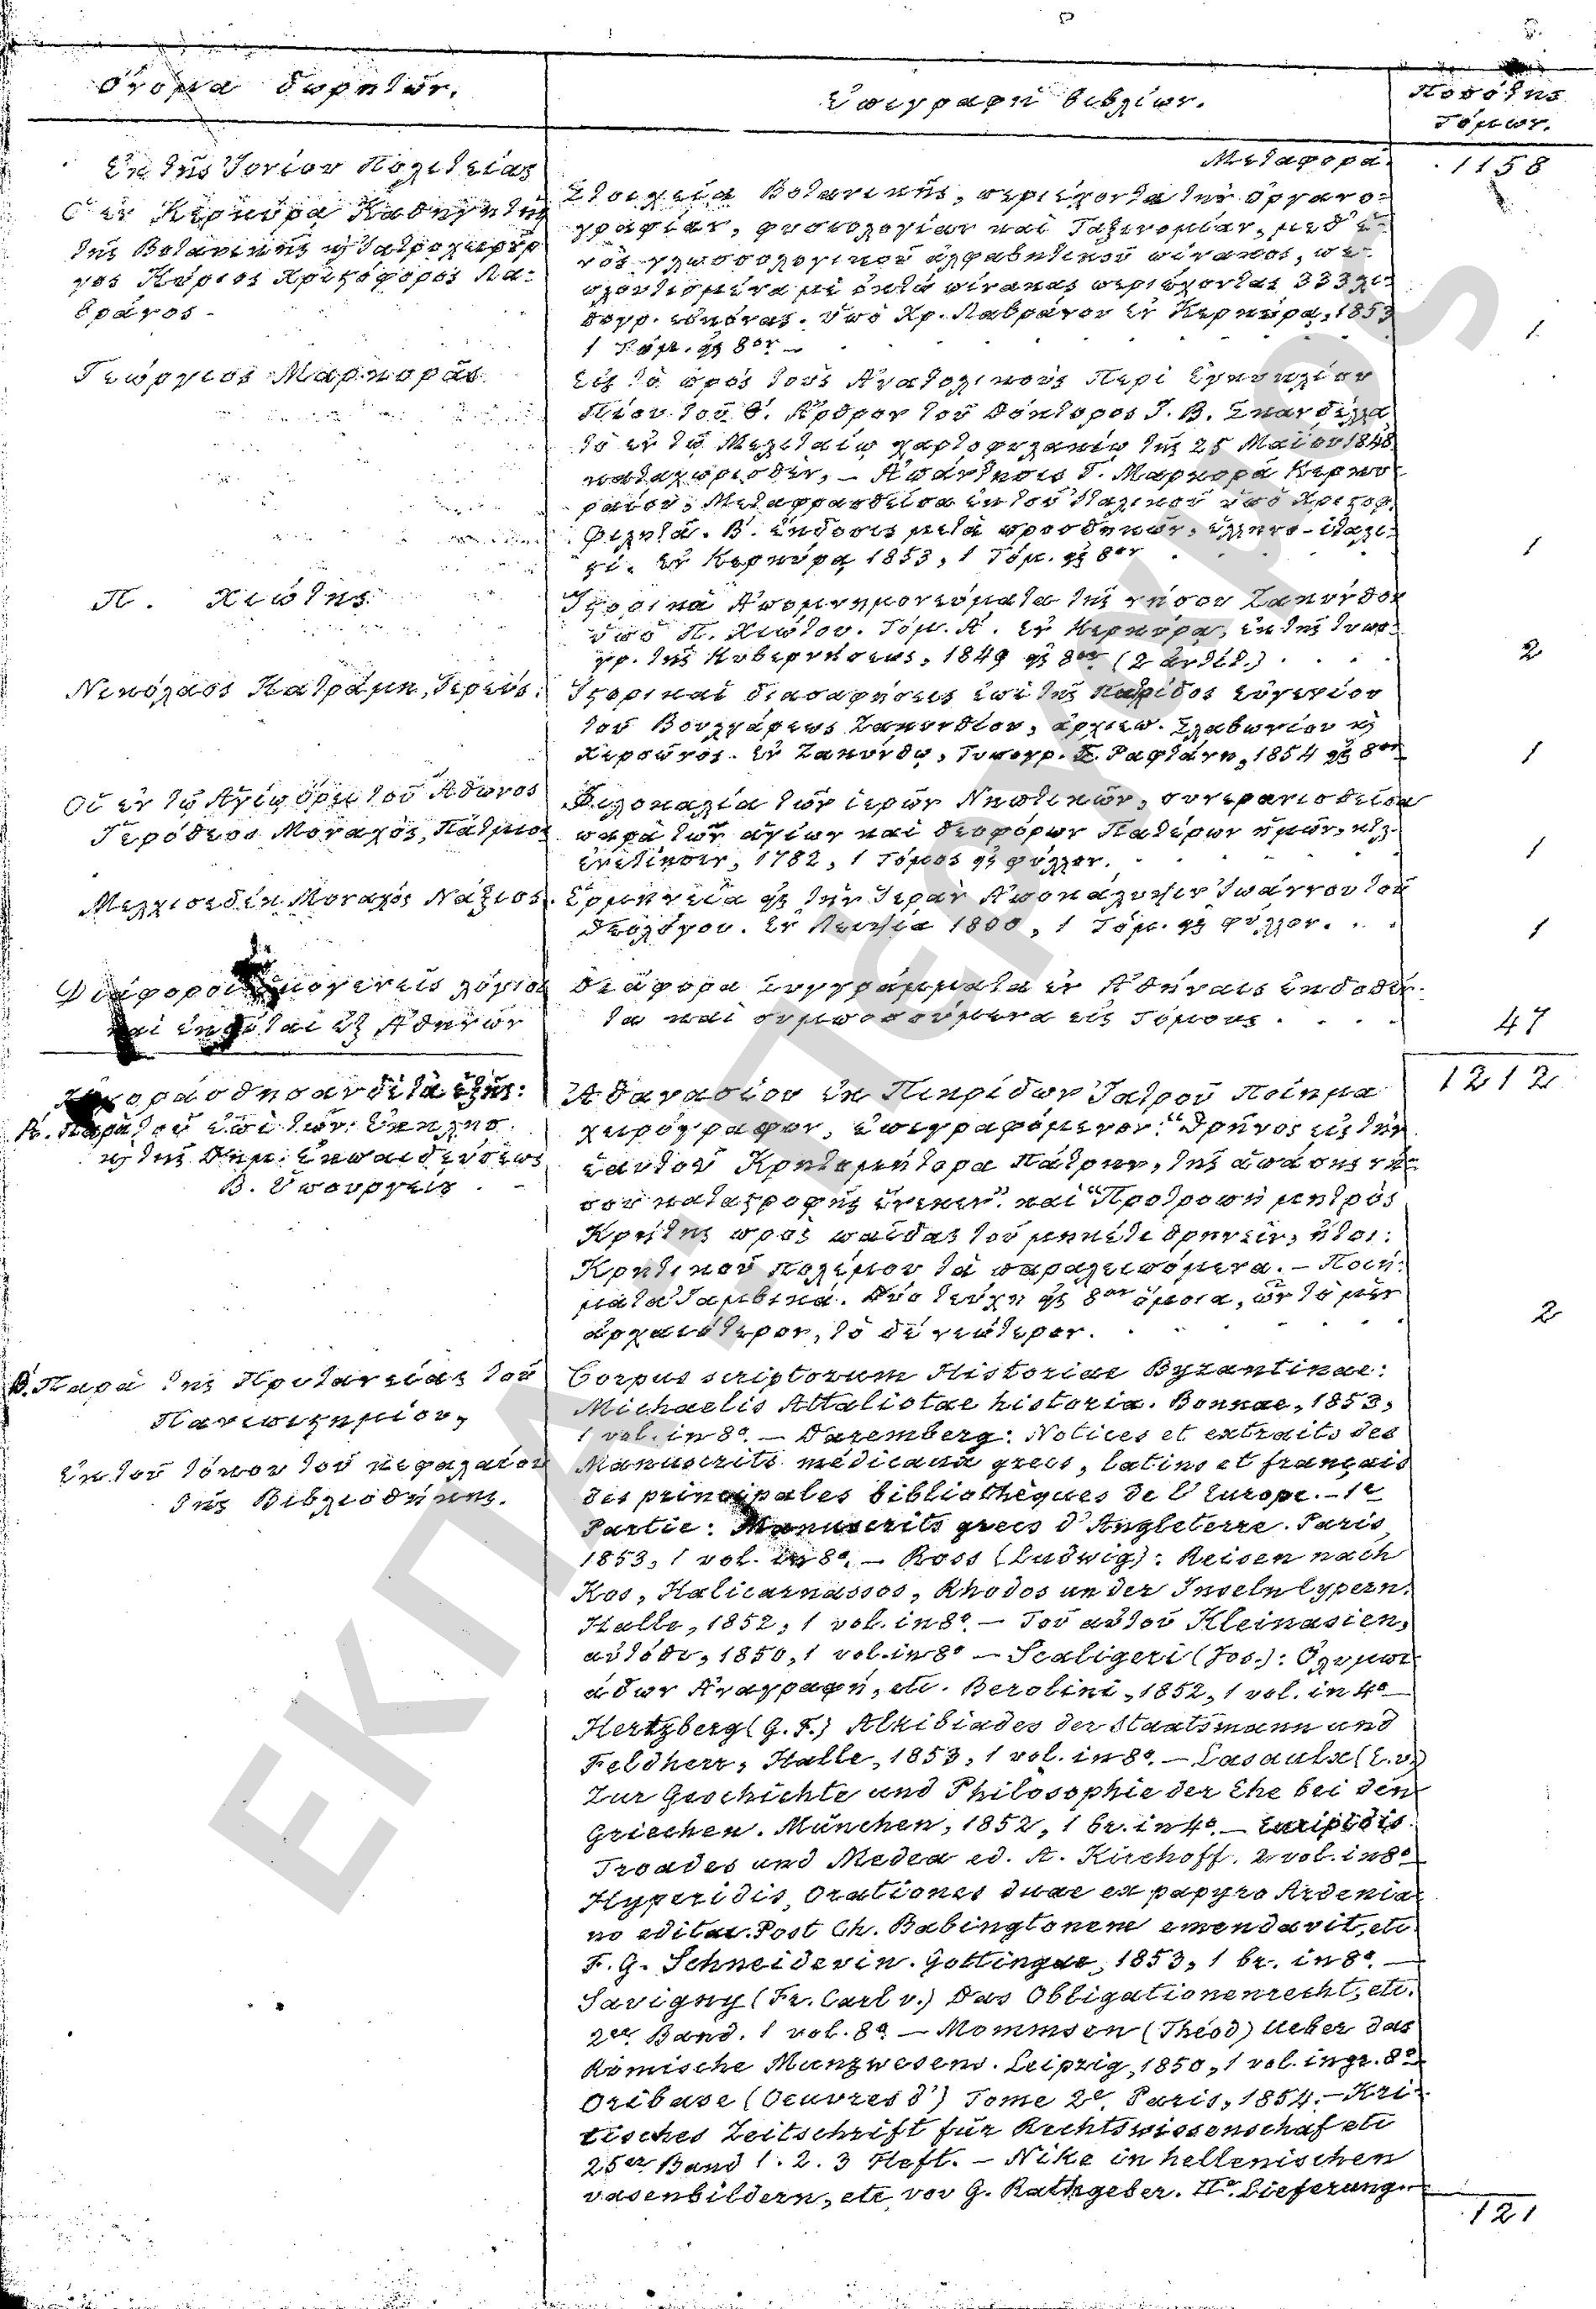 Ὄνομα δωρητῶν.
Ἐπιγραφὴ βιβλίων.
Ποσότης
τόμων.
Μεταφορὰ
1158
Ἐκ τῆς Ἰονίου Πολιτείας
Ὁ ἐν Κερκύρᾳ Καθηγητὴς
τῆς Βοτανικῆς
Κύριος Χριστόφορος Λα-
βράνος
Στοιχεῖα Βοτανικῆς, περιέχοντα τὴν ὀργανο-
γραφίαν, φυσιολογίαν καὶ Ταξινομίαν, μεθ' ἑ-
νὸς γλωσσολογικοῦ ἀλφαβητικοῦ πίνακος, πε-
πλουτισμένα μὲ ὀκτὼ πίνακας περιέχοντας 333 λι-
θογρ. εἰκόνας. ὑπὸ Χρ. Λαβράνου ἐν Κερκύρᾳ, 1853
1 Τόμ. εἰς 8ον
1
Γεώργιος Μαρκορᾶς
Εἰς τὸ πρὸς τοὺς Ἀνατολικοὺς Περὶ Ἐγκυκλίου
Πίου τοῦ Θ΄. Ἄρθρον τοῦ Δόκτορος Ι. Β. Σκανδέλλα
τὸ ἐν τῷ Μελιταίῳ χαρτοφυλακίῳ τῆς 25 Μαΐου 1848
καταχωρισθὲν, – Ἀπάντησις Γ. Μαρκορᾶ Κερκυ-
ραίου, Μεταφρασθεῖσα ἐκ τοῦ Ἰταλικοῦ ὑπὸ Χριστοφ.
Φιλητᾶ. Β΄. ἔκδοσις μετὰ προσθηκῶν, ἑλληνο-ἰταλι-
στί. ἐν Κερκύρᾳ 1853, 1 Τόμ. εἰς 8ον
1
Π. Χιώτης
Ἱστορικὰ Ἀπομνημονεύματα τῆς νήσου Ζακύνθου
ὑπὸ Π. Χιώτου. Τόμ. Α΄. ἐν Κερκύρᾳ, ἐκ τῆς τυπο-
γρ. τῆς Κυβερνήσεως, 1849 εἰς 8ον (2 ἀντίτ.)
2
Νικόλαος Κατράμη, Ἱερεύς.
Ἱστορικαὶ διασαφήσεις ἐπὶ τῆς πατρίδος Εὐγενίου
τοῦ Βουλγάρεως Ζακυνθίου, ἀρχιεπ. Σλαβωνίου κ
Χερσῶνος. ἐν Ζακύνθῳ, Τυπογρ. Σ. Ραφτάνη, 1854 εἰς 8ον
1
Οἱ ἐν τῷ Ἁγίῳ ὄρει τοῦ Ἄθωνος
Ἱερόθεος Μοναχὸς, Πάτμιος
Φιλοκαλία τῶν ἱερῶν Νηπτικῶν, συνερανισθεῖσα
παρὰ τῶν ἁγίων καὶ θεοφόρων Πατέρων ἡμῶν, κτλ.
Ἐνετίησιν, 1782, 1 Τόμος εἰς φύλλον.
1
Μελχισεδὲκ Μοναχὸς Νάξιος.
Ἑρμηνεία εἰς τὴν Ἱερὰν Ἀποκάλυψιν Ἰωάννου τοῦ
Θεολόγου. Ἐν Λειψίᾳ 1800, 1 Τόμ. εἰς φύλλον.
1
Διάφοροι ὁμογενεῖς λόγιοι
καὶ ἐκδόται ἐξ Ἀθηνῶν
Διάφορα Συγγράμματα ἐν Ἀθήναις ἐκδοθέν-
τα καὶ συμποσούμενα εἰς τόμους
47
1212
Ἠγοράσθησαν δὲ τὰ ἑξῆς:
Α΄. Παρὰ τοῦ ἐπὶ τῶν Ἐκκλησ.
κ τῆς Δημ. Ἐκπαιδεύσεως
Β. Ὑπουργείου
Ἀθανασίου ἐκ Πικρίδων Ἰατροῦ Ποίημα
χειρόγραφον, ἐπιγραφόμενον: "Θρῆνος εἰς τὴν
ἑαυτοῦ Κρητομήτορα Πάτρην, τῆς ἁπάσης νή-
σου καταστροφῆς ἕνεκεν" καὶ "Προτροπὴ μητρὸς
Κρήτης πρὸς παῖδας τοῦ μηκέτι θρηνεῖν, ἤτοι:
Κρητικοῦ πολέμου τὰ παραλειπόμενα. – Ποιή-
ματα Ἰαμβικά. Δύο τεύχη εἰς 8ον ὅμοια, ὧν τὸ μὲν
ἀρχαιότερον, τὸ δὲ νεώτερον.
2
Β΄. Παρὰ τῆς Πρυτανείας τοῦ
Πανεπιστημίου,
ἐκ τοῦ τόκου τοῦ κεφαλαίου
τῆς Βιβλιοθήκης.
Corpus scriptorum Historiae Byzantinae:
Michaelis Attaliotae historia. Bonnae, 1853,
1 vol. in 8º. – Daremberg: Notices et extraits des
Manuscrits médicaux grecs, latins et français
des principales bibliothèques de l'Europe. – 1e
Partie: Manuscrits grecs d'Angleterre. Paris,
1853, 1 vol. in 8º. – Ross (Ludwig): Reisen nach
Kos, Halicarnassos, Rhodos un der Inseln Cypern.
Halle, 1852, 1 vol. in 8º. – Τοῦ αὐτοῦ Kleinasien,
αὐτόθι, 1850, 1 vol. in 8º – Scaligeri (Jos.): Ὀλυμπι-
άδων Ἀναγραφή, etc. Berolini, 1852, 1 vol. in 4º –
Hertzberg (G. F.) Alkibiades der Staatsmann und
Feldherr, Halle, 1853, 1 vol. in 8º. – Lasaulx (E. v.)
Zur Geschichte und Philosophie der Ehe bei den
Griechen. München, 1852, 1 br. in 4º. – Euripidis
Troades und Medea ed. A. Kirchoff. 2 vol. in 8º –
Hyperidis, Orationes duae ex papyro Ardenia-
no editae. Post Ch. Babingtonem emendavit, etc.
F. G. Schneidevin. Gottingae, 1853, 1 br. in 8º. –
Savigny (Fr. Carl v.) Das Obligationenrecht, etc.
2er Band. 1 vol. 8º. – Mommsen (Théod) Ueber das
Römische Munzwesens. Leipzig, 1850, 1 vol. in gr. 8º –
Oribase (Oeuvres d') Tome 2e. Paris, 1854. – Kri-
tisches Zeitschrift für Rechtswissenschaf etc
25er Band 1. 2. 3 Heft. – Nike in hellenischen
vasenbildern, etc. vov G. Rathgeber. IIe. Lieferung. –
121
ΕΚΠΑ - ΙΣΤΟΡΙΚΟ ΑΡΧΕΙΟ